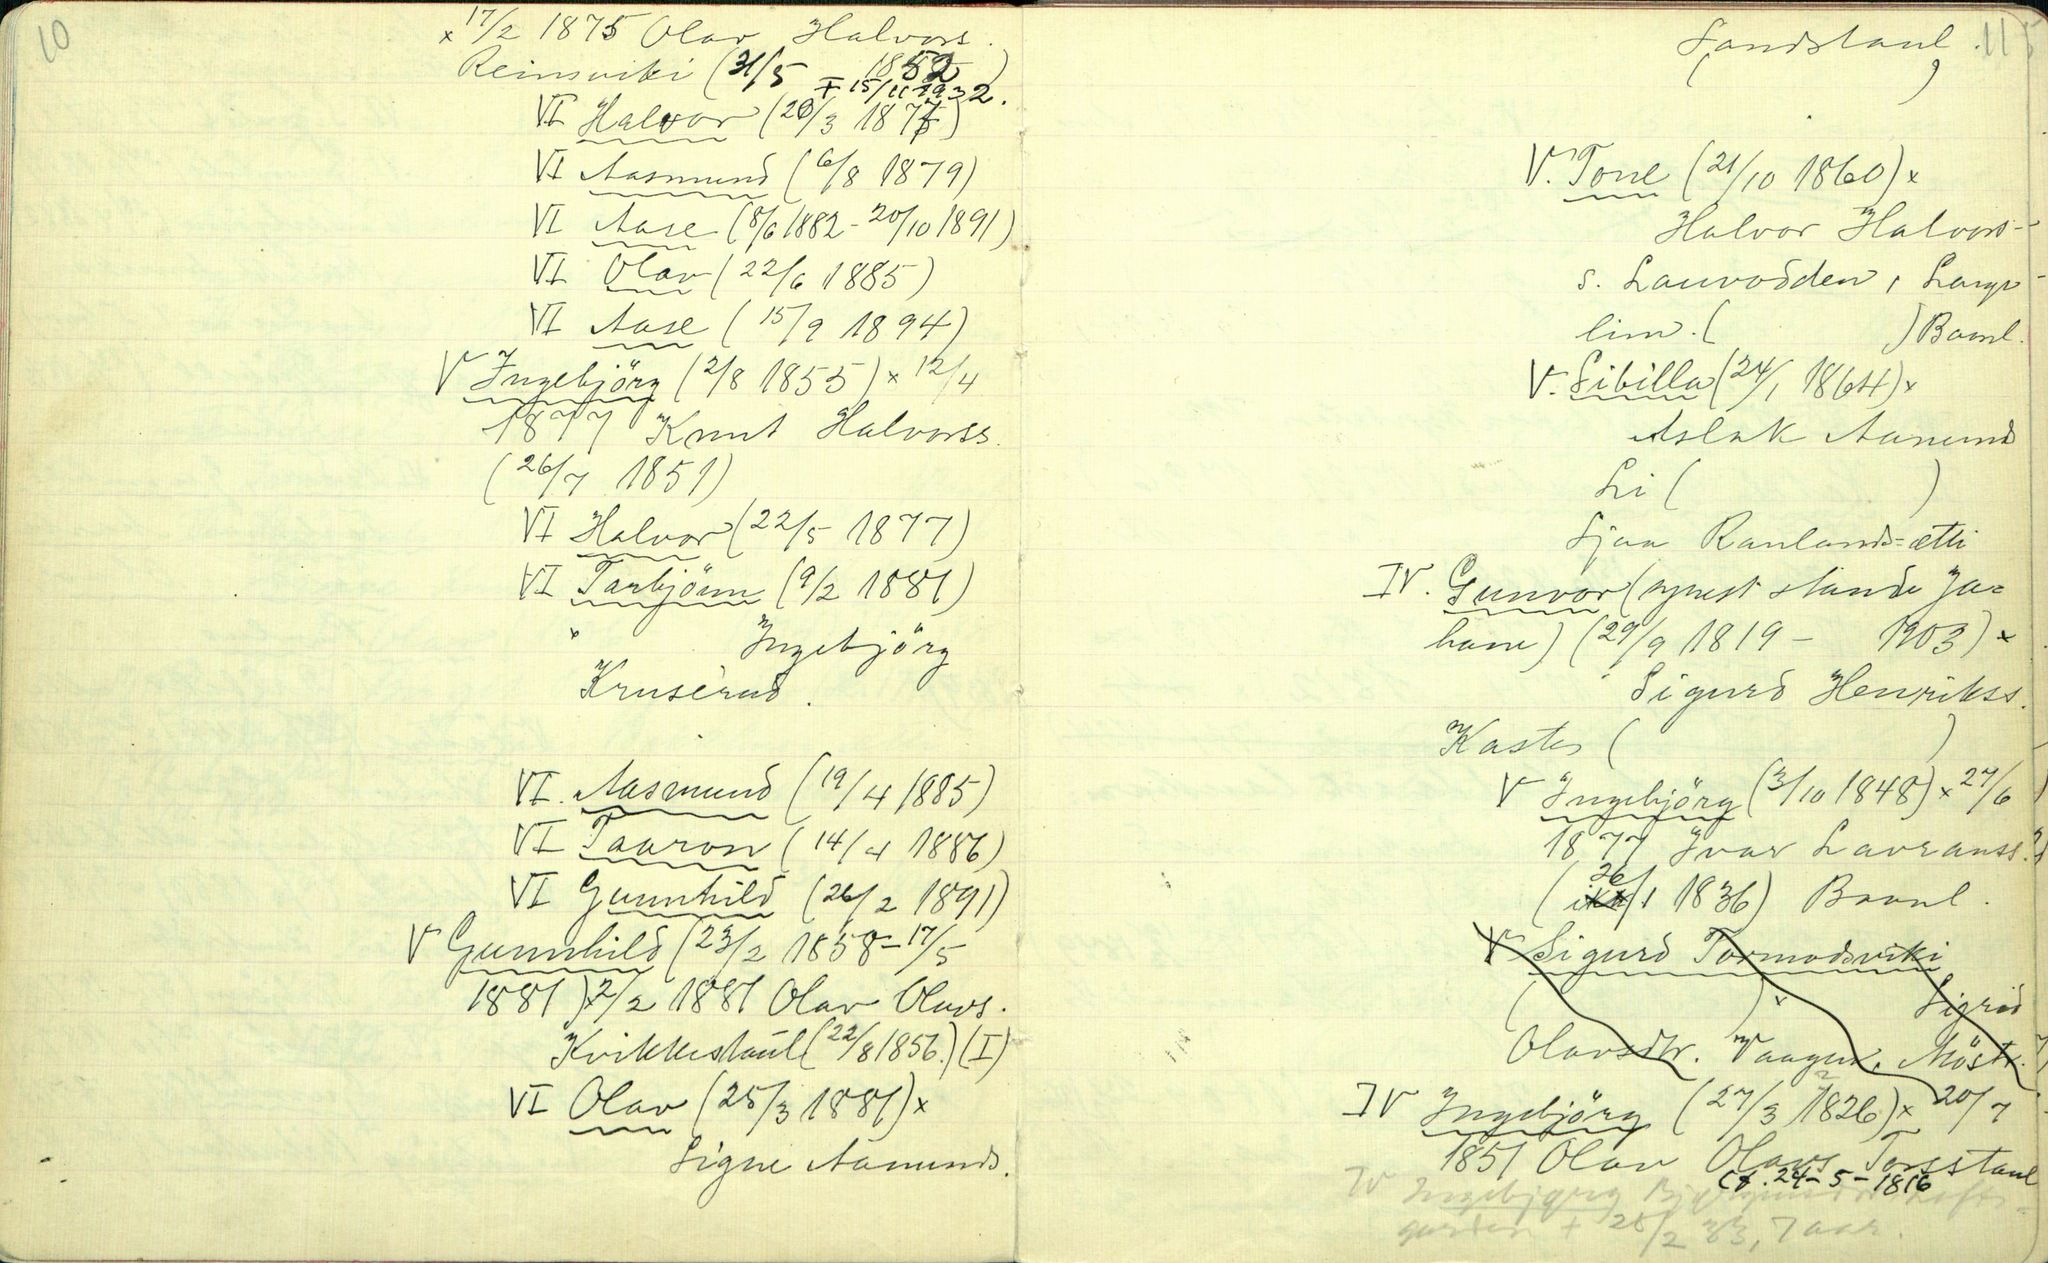 10
x 17/2 1875 Olav Halvors.
Reinsviki (31/5 1852)
+ 15/11 1932.
VI Halvor (20/3 187 )
VI Aasmund (6/8 1879)
VI Aase (8/6 1882 - 20/10 1891)
VI Olav (22/6 1885)
VI Aase (15/9 1894)
V Ingebjörg (2/8 1855) x 12/4
1877 Knut Halvorss.
(26/7 1851)
VI Halvor (22/5 1877)
VI Tarbjönn (9/2 1881)
x Ingebjörg
Kruserud.
VI. Aasmund (19/4 1885)
VI Taaron (14/4 1886)
VI Gunnhild (26/2 1891)
V Gunnhild (23/2 1858 - 17/5
1881) x 2/2 1881 Olav Olavs.
Kvikkestaul (22/8 1856.) (I)
VI Olav (25/3 1881) x
Signe Aamunds.
11
Sandstaul.
( )
V. Tone (21/10 1860) x
Halvor Halvors-
s. Lauvodden, Langs-
lim. ( ) Baonl.
V. Sibilla (24/1 1864) x
Aslak Aanund
Li ( )
Sjaa Raulands=ætti
IV. Gunvor (synest stande Ja=
hane) (29/9 1819 - 1903) x
Sigurd Henrikss.
Kasten ( )
V Ingebjörg (3/10 1848) x 27/6
1877 Ivar Lavranss.
(26/1 1836) Baonl.
V Sigurd Tormodsviki
( ) x Sigrid
Olavsdtr. Vaagen, Möstr.
IV Ingebjörg (27/3 1826) x 20/7
1851 Olav Olavs Torsstaul
(f. 24-5-1816
IV Ingebjørg
garden + 28/2 33, 7 aar.